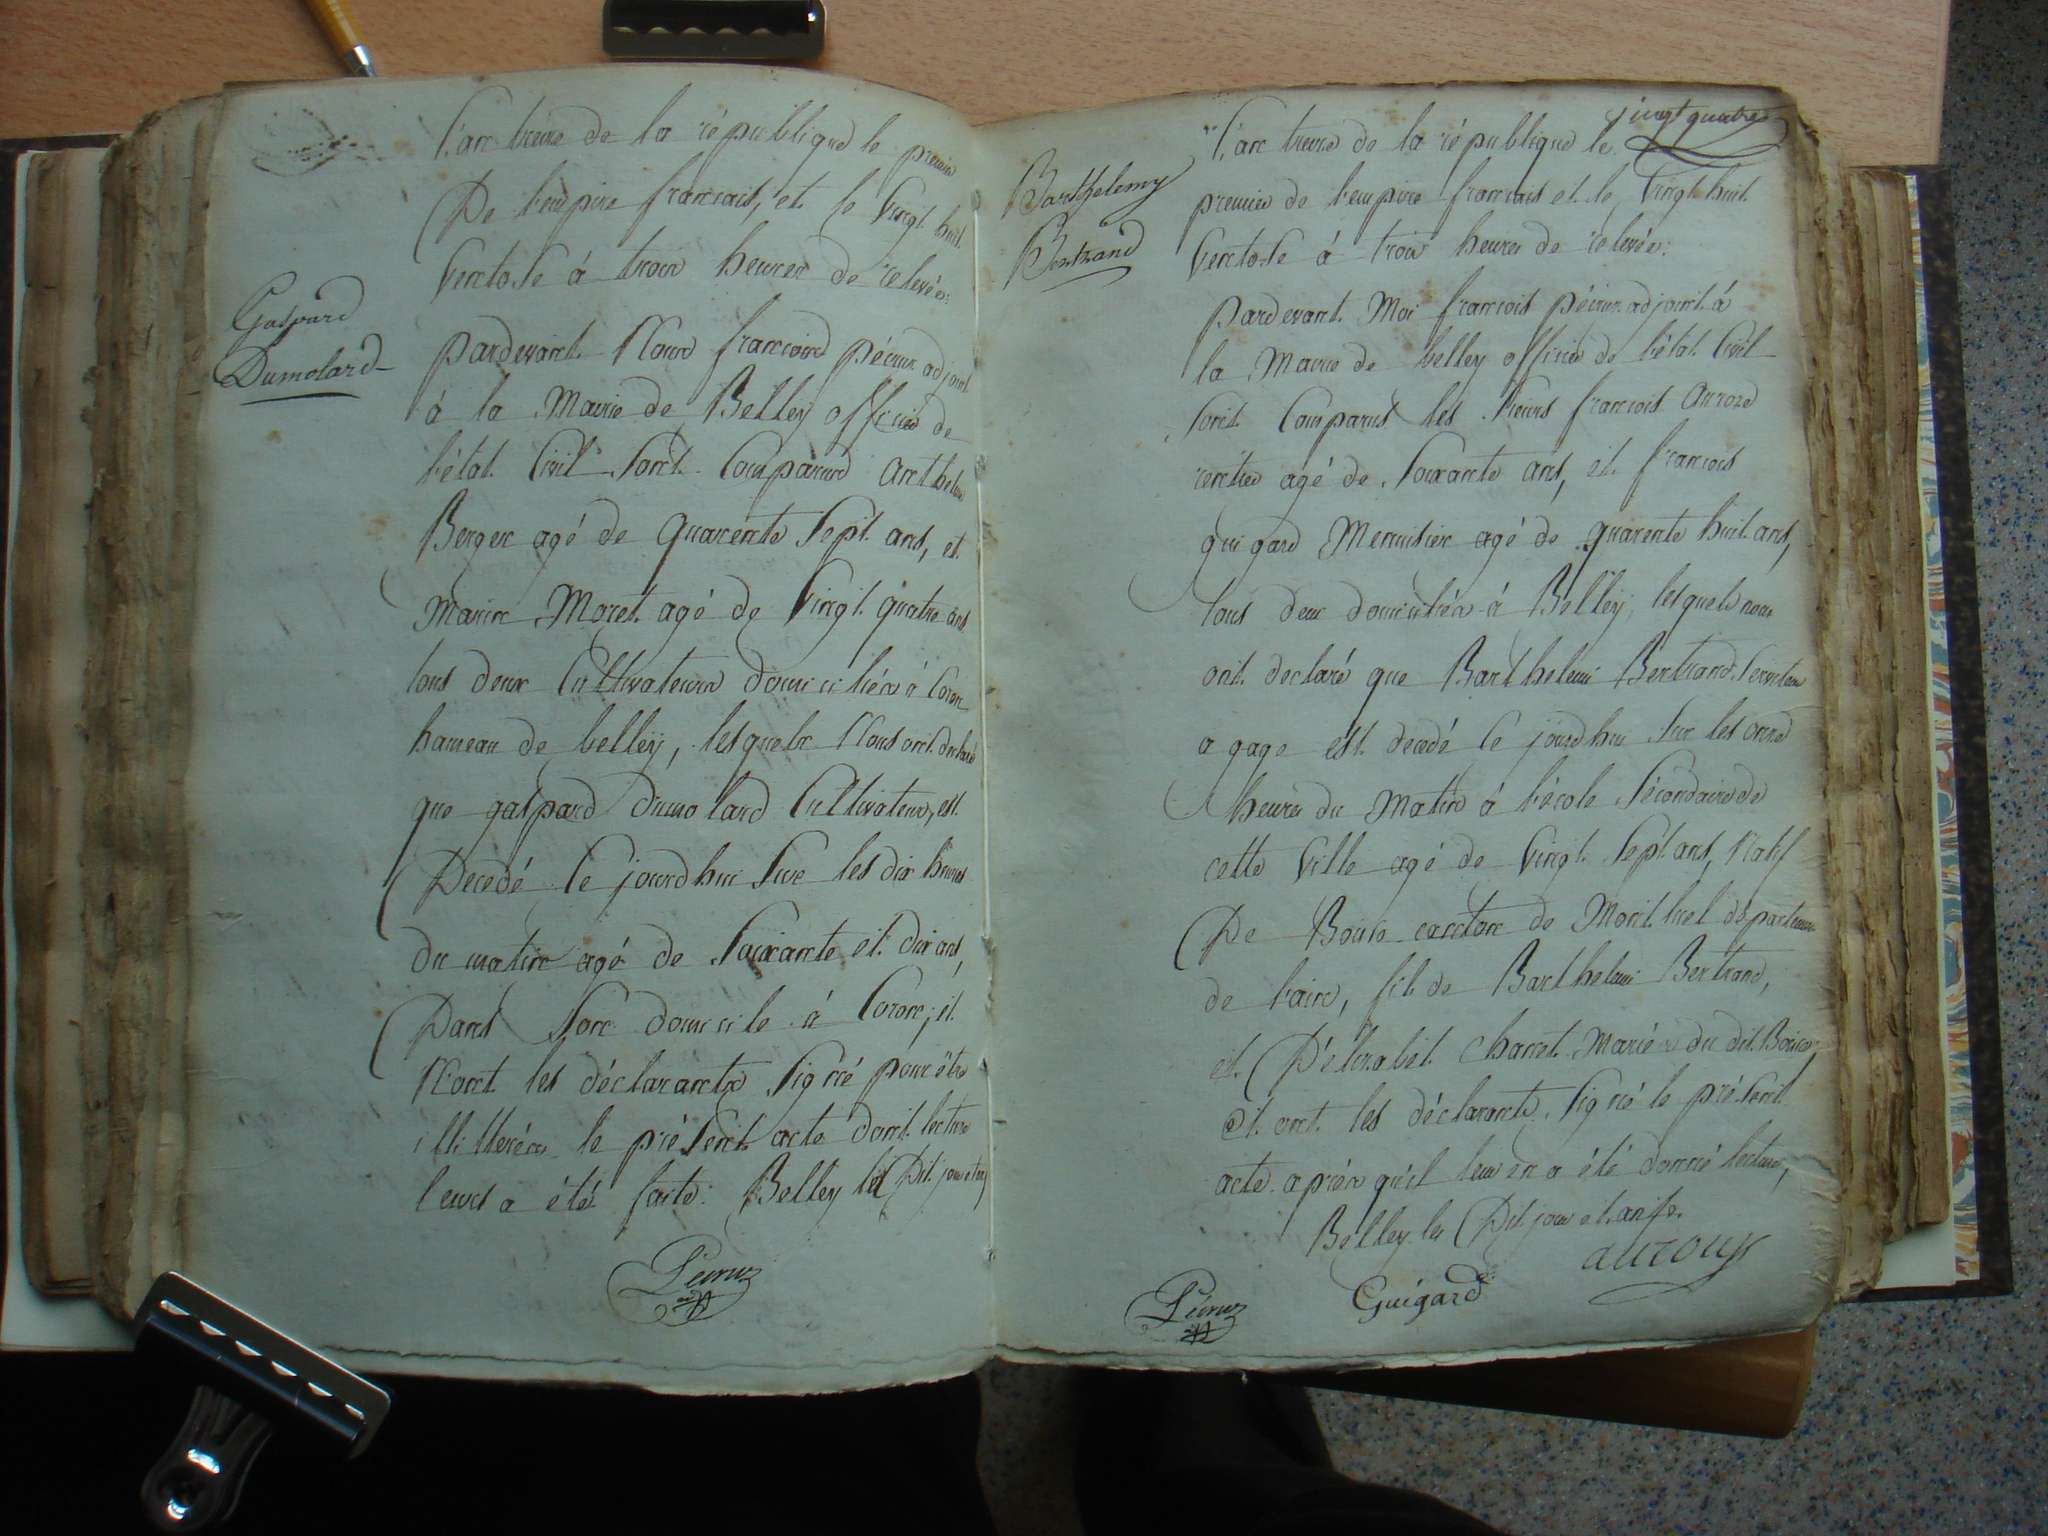 L'an treize de la république le premier
De l'empire francais, et le Vingt huit
Ventose à trois heures de relevée:
Gaspard
Dumolard
pardevant Nous francois pécruz adjoint
à la Mairie de Belley officier de
l'état Civil Sont Comparus Anthelme
Berger agé de quarente Sept ans, et
Marin Moret agé de Vingt quatre ans
tous deux Cultivateurs domiciliés à Coron
hameau de belley, lesquels Nous ont declaré
que gaspard Dumolard Cultivateur, est
Decedé Cejourdhui Sur les dix heures
du matin agé de Soixante et dix ans,
Dans Son domicile à Coron; et
N'ont les déclarants Signé pour être
illitterés le présent acte dont lecture
leurs a été faite: Belley les Dit jour et an
Pécruz
vingt quatre
Barthelemy
Bertrand
L'an treize de la république le
premier de l'empire francais et le Vingt huit
Ventose à trois heures de relevée:
pardevant Moi francois pécruz adjoint à
la Mairie de belley officier de l'état Civil
Sont Comparus les Sieurs francois
rentier agé de Soixante ans, et francois
guigard Menuisier agé de quarente huit ans,
tous deux domiciliés à Belley, lesquels nous
ont declaré que Barthelemi Bertrand Serviteur
a gage est decedé Cejourdhui Sur les onze
heures du Matin à l'école Sécondaire de
cette Ville agé de Vingt Sept ans, Natif
De canton de Montluel département
de l'ain, fils de Barthelemi Bertrand,
et D'élizabet Mariés du dit
et ont les déclarants Signé le présent
acte après qu'il leur en a été donné lecture,
Belley les Dit jour et an
Pécruz Guigard